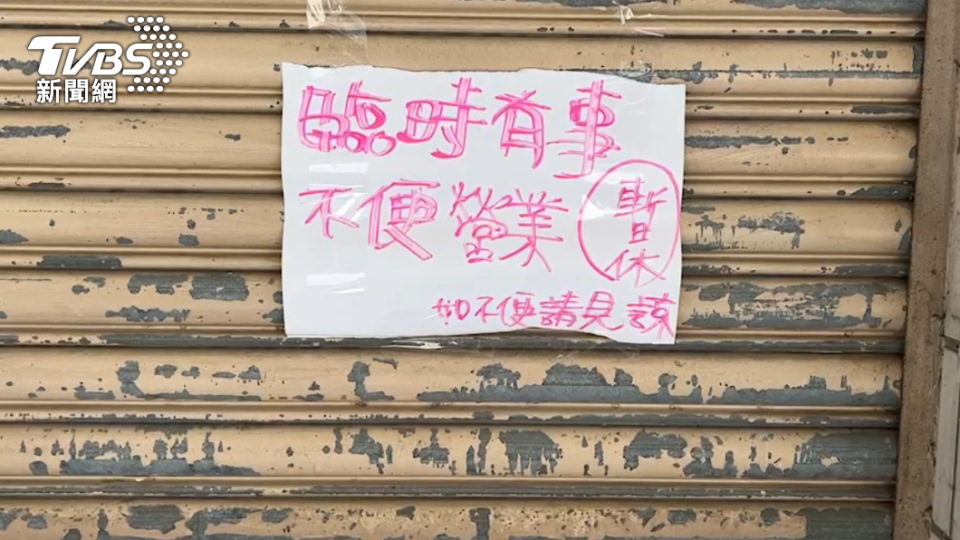 TVBS
新聞網
臨時有事
不便營業
暫休
如不便請見諒